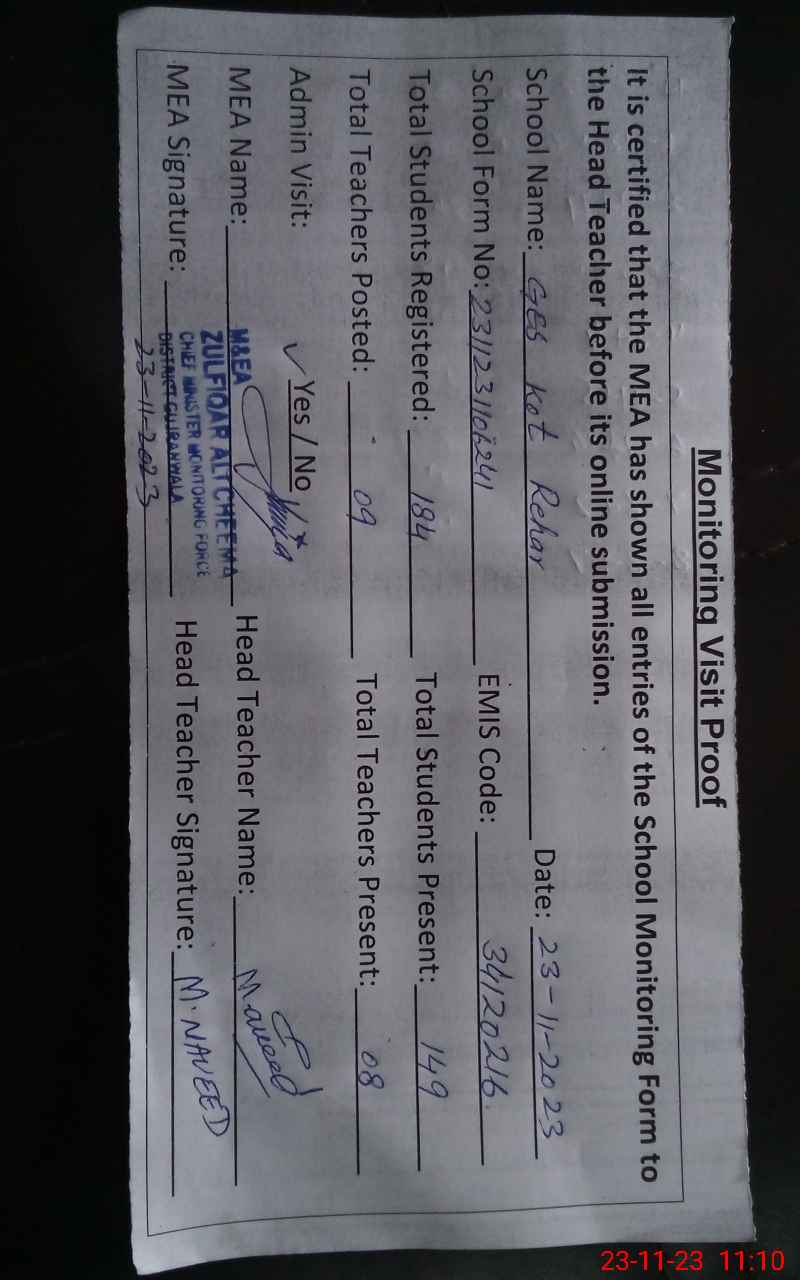 Monitoring Visit Proof
It is certified that the MEA has shown all entries of the School Monitoring Form to
the Head Teacher before its online submission.
School Name: GES Kot Rehar Date: 23-11-2023
School Form No: 2311231106241 EMIS Code: 34120216.
Total Students Registered: 184 Total Students Present: 149
Total Teachers Posted: 09 Total Teachers Present: 08
Admin Visit: ✓ Yes / No
MEA Name: M&EA Head Teacher Name: Naveed
ZULFIQAR ALI CHEEMA
CHIEF MINISTER MONITORING FORCE
MEA Signature: DISTRICT GUJRANWALA Head Teacher Signature: M. NAVEED
23-11-2023
23-11-23 11:10